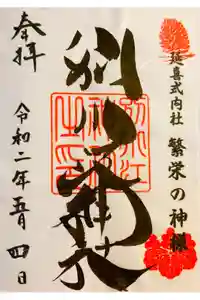 延喜式内社
繁栄の神様
別小江神社
奉拝
令和二年五月四日